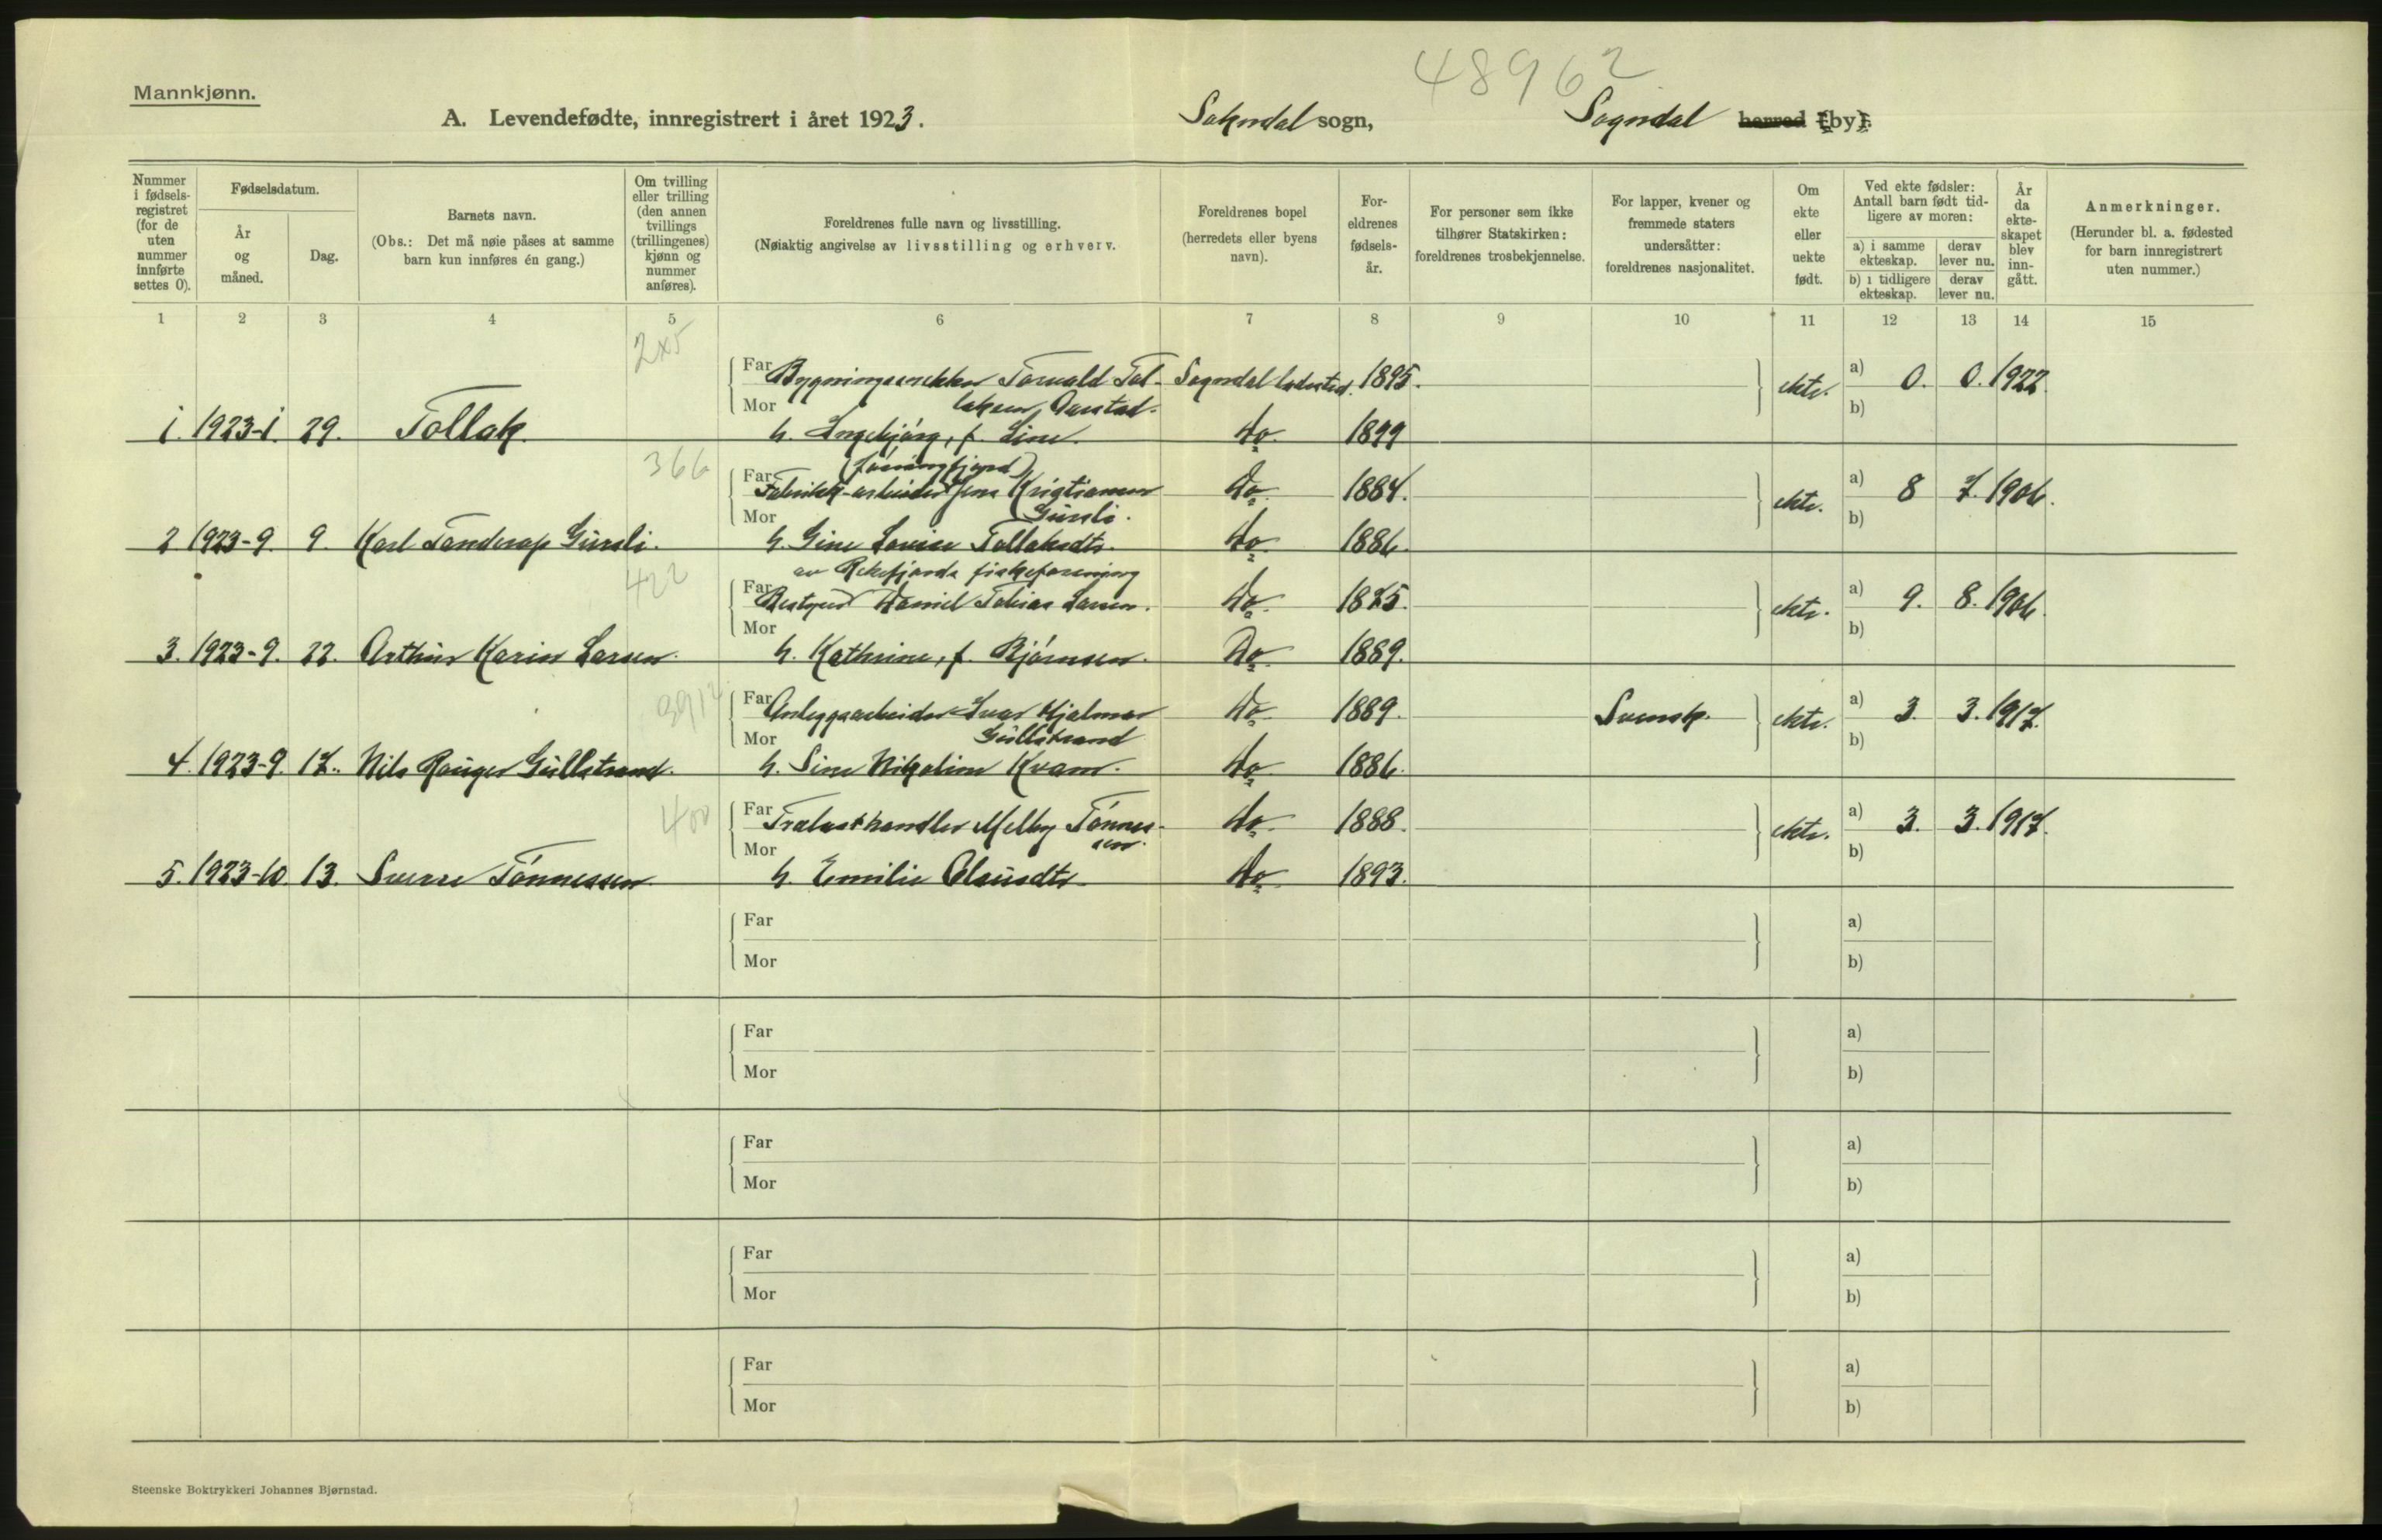 48962
Mannkjønn.
A. Levendefødte, innregistrert i året 1923. Sokndal sogn, Sogndal herred (by).
Nummer i fødselsregistret (for de uten nummer innførte settes 0).
Fødselsdatum.
År og måned.
Dag.
Barnets navn.
(Obs.: Det må nøie påses at samme barn kun innføres én gang.)
Om tvilling eller trilling (den annen tvillings (trillingenes) kjønn og nummer anføres).
Foreldrenes fulle navn og livsstilling.
(Nøiaktig angivelse av livsstilling og erhverv.
Foreldrenes bopel (herredets eller byens navn).
Foreldrenes fødselsår.
For personer sem ikke tilhører Statskirken: foreldrenes trosbekjennelse.
For lapper, kvener og fremmede staters undersåtter: foreldrenes nasjonalitet.
Om ekte eller uekte født.
Ved ekte fødsler: Antall barn født tidligere av moren:
a) i samme ekteskap.
derav lever nu.
b) i tidligere ekteskap.
derav lever nu.
År da ekteskapet blev inngått.
Anmerkninger.
(Herunder bl. a. fødested for barn innregistrert uten nummer.)
1 2 3 4 5 6 7 8 9 10 11 12 13 14 15
2x5
Far Bygningssnekker Torvald Tol- Sogndal ladested. 1895. ekte. a) 0. 0. 1922.
Mor laksen Aarstad. b)
1. 1923-1. 29. Tollak. h. Ingebjørg, f. Line. do. 1899
366
(Jøssingfjord)
Far Fabrikk-arbeider Jens Kristiansen do. 1884. ekte. a) 8 7. 1906.
Mor Gursli. b)
2. 1923-9. 9. Karl Tanderup Gursli. h. Gine Lovise Tollaksdtr. do. 1886.
422
av Rekefjords fiskeforening
Far Bestyrer Daniel Tobias Larsen. do. 1885. ekte. a) 9. 8. 1906.
Mor b)
3. 1923-9. 22. Arthur Karin Larsen. h. Kathrine, f. Bjørnsen. Do. 1889.
Far Anleggsarbeider Ivar Hjalmar do. 1889. Svensk. ekte. a) 3. 3. 1917.
Mor Gullstrand b)
4. 1923-9. 17. Nils Ranger Gullstrand. h. Sine Nikoline Kvam. do. 1886.
400
Far Trælasthandler Melby Tønnes- do. 1888. ekte. a) 3. 3. 1917.
Mor sen. b)
5. 1923-10. 13. Sverre Tønnessen h. Emilie Olausdtr. do. 1893.
Far a)
Mor b)
Far a)
Mor b)
Far a)
Mor b)
Far a)
Mor b)
Far a)
Mor b)
Steenske Boktrykkeri Johannes Bjørnstad.